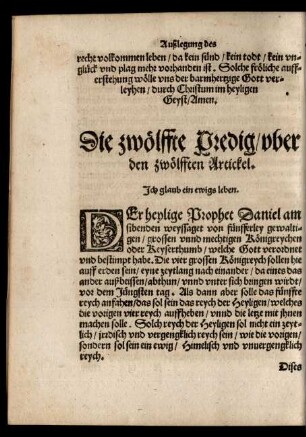 Außlegung des
recht volkommen leben / da kein sünd / kein todt / kein vn-
glück vnd plag mehr vorhanden ist. Solche fröliche auff-
erstehung wölle vns der barmhertzige Gott ver-
leyhen / durch Christum im heyligen
Geyst / Amen.
Die zwölffte Predig / vber
den zwölfften Artickel.
Ich glaub ein ewigs leben.
DEr heylige Prophet Daniel am
sibenden weyssaget von fünfferley gewalti-
gen / grossen vnnd mechtigen Königreychen
oder Keyserthumb / welche Gott verordnet
vnd bestimpt habe. Die vier grossen Königreych sollen hie
auff erden sein / eyne zeytlang nach einander / da eines das
ander auffbeissen / abthun / vnnd vnter sich bringen würdt /
vor dem Jüngsten tag. Als dann aber solle das fünffte
reych anfahen / das sol sein das reych der Heyligen / welches
die vorigen vier reych auffheben / vnnd die letze mit jhnen
machen solle. Solch reych der Heyligen sol nicht ein zeyt-
lich / jrdisch vnd vergengklich reych sein / wie die vorigen /
sondern sol sein ein ewig / Himelisch vnd vnuergengklich
reych.
Dises